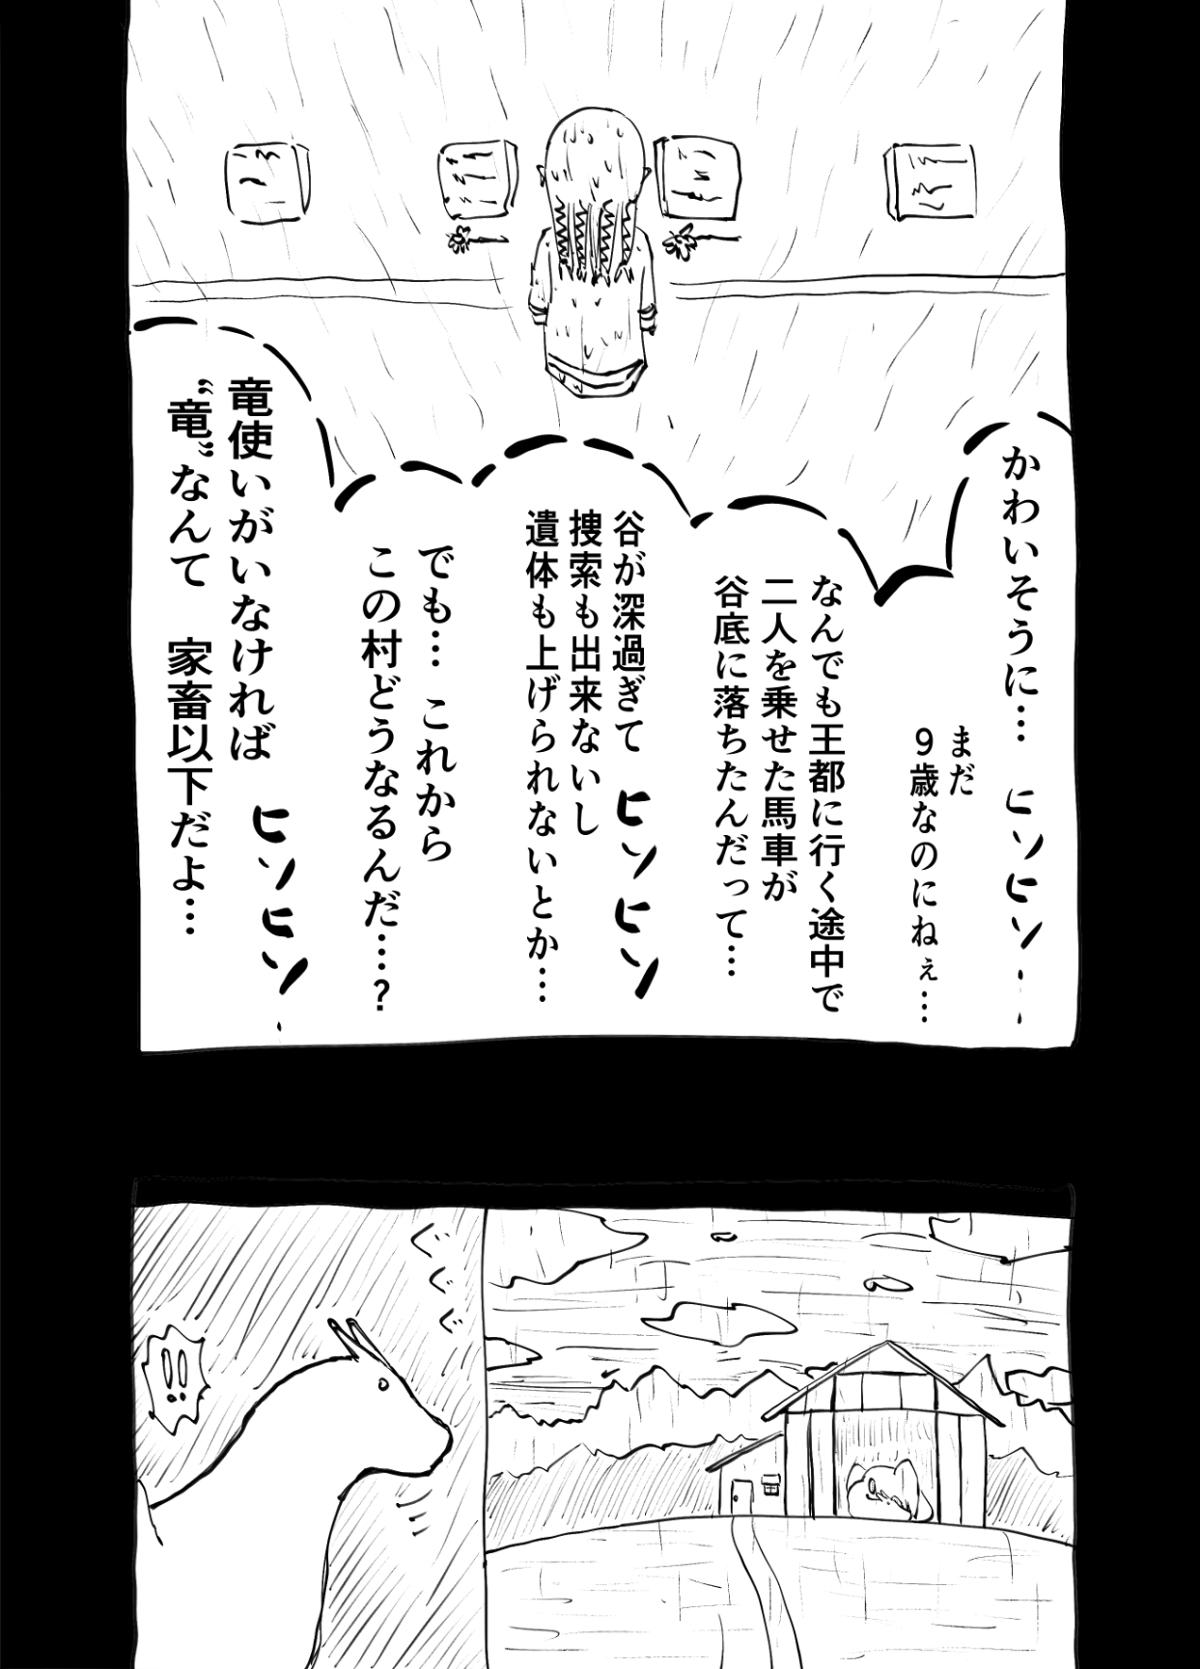 かわいそうに…
ヒソヒソ…
まだ
9歳なのにねぇ…
なんでも王都に行く途中で
二人を乗せた馬車が
谷底に落ちたんだって…
谷が深過ぎて
捜索も出来ないし
遺体も上げられないとか…
ヒソヒソ
でも… これから
この村どうなるんだ…?
竜使いがいなければ
“竜”なんて 家畜以下だよ…
ヒソヒソ…
ぐぐぐ
!!